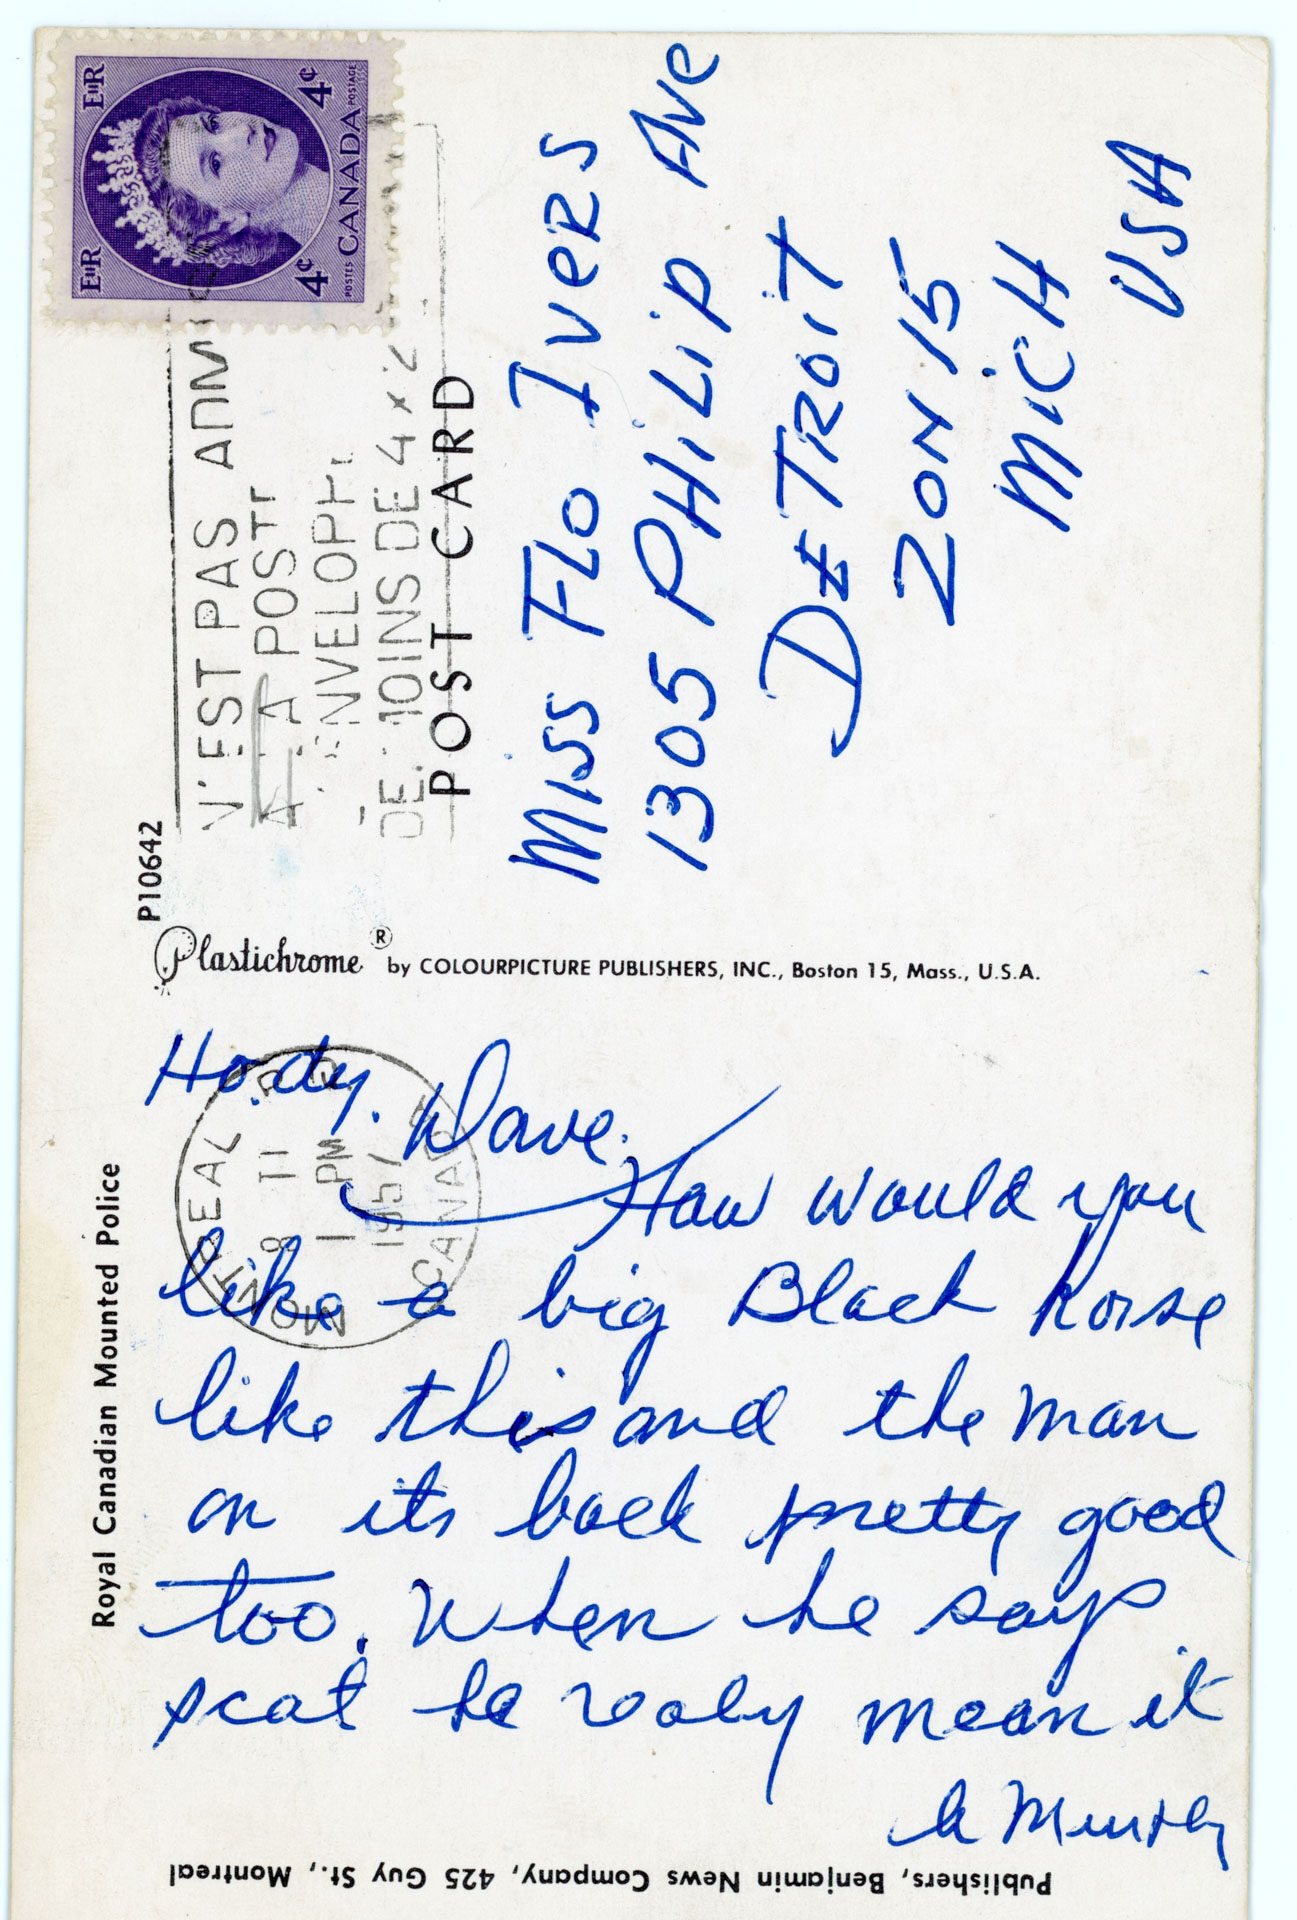 Royal Canadian Mounted Police
Hody. Dave.
How would you
like a big Black horse
like this and the man
on its back pretty good
too. When he says
scat he realy mean it
Publishers, Benjamin News Company, 425 Guy St., Montreal
P10642
Plastichrome® by COLOURPICTURE PUBLISHERS, INC., Boston 15, Mass., U.S.A.
POST CARD
Miss Flo Ivers
1305 PHiLip Ave
DETROiT
ZON 15
MiCH
USA
EIIR EIIR
4¢ 4¢
POSTES CANADA POSTAGE
N'EST PAS
POST
DE 4 x 2
MONTREAL
8 II
1 PM
1957
CANADA